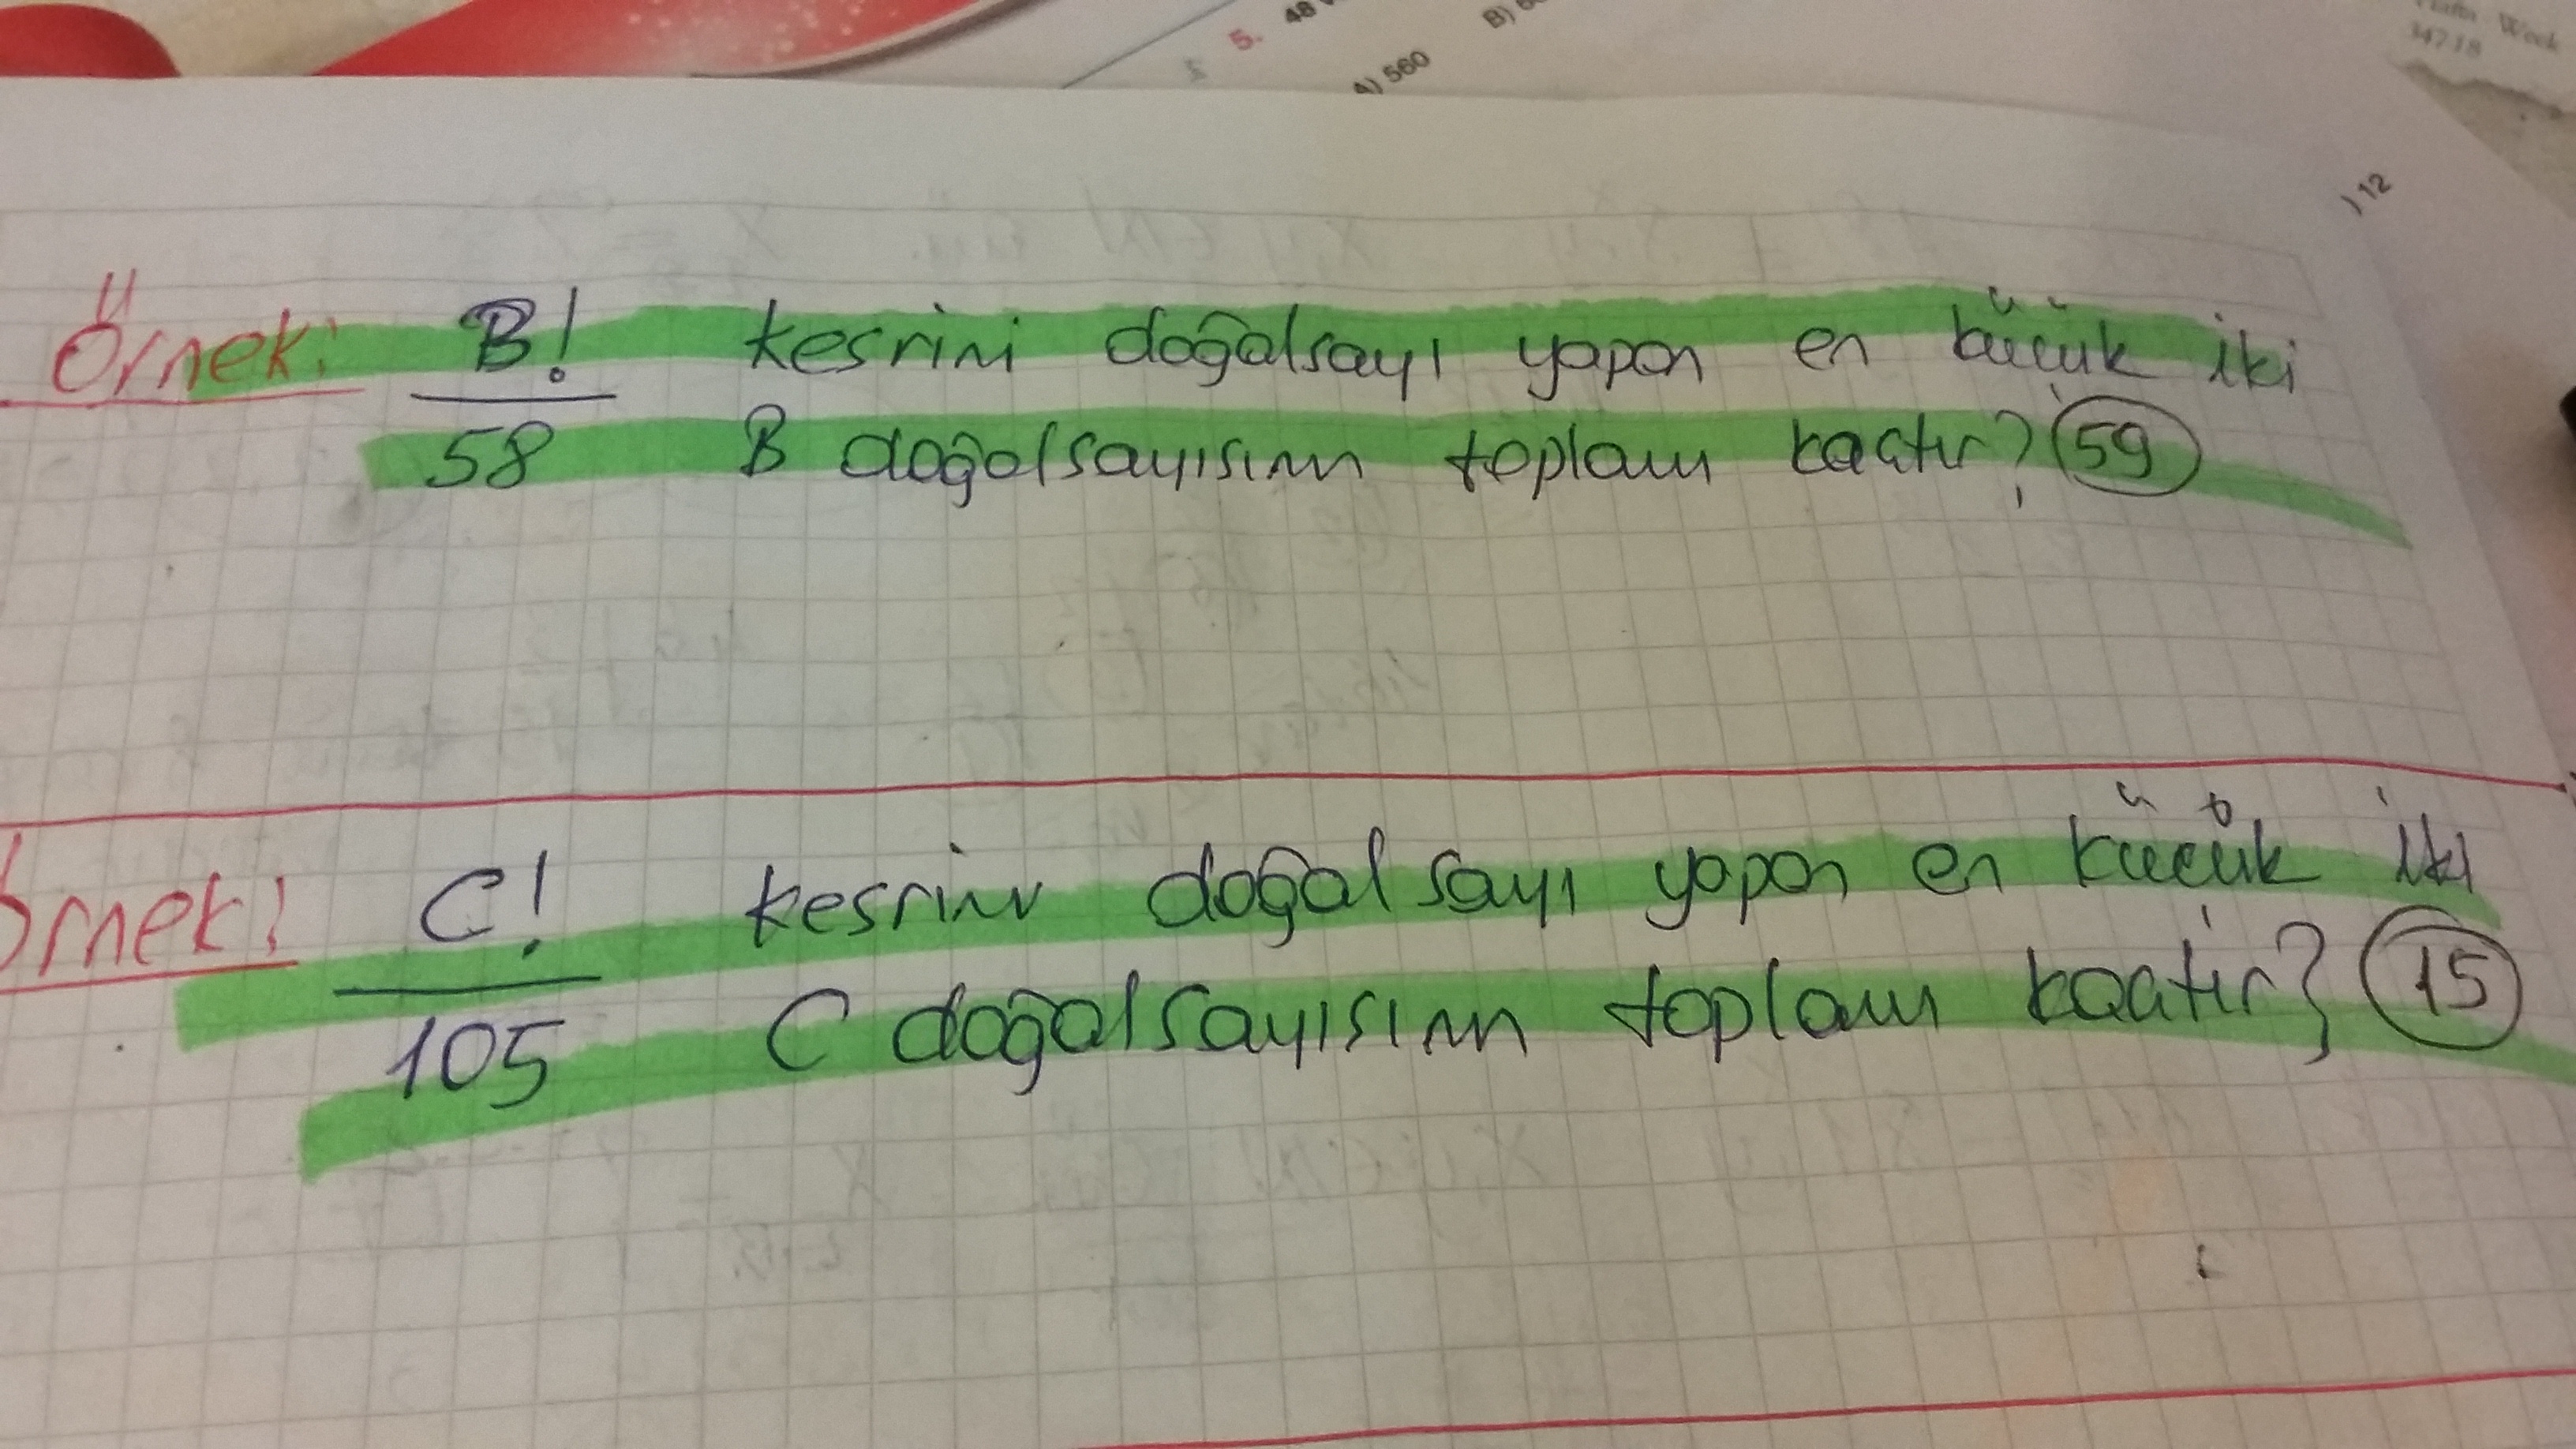 5. 48
B)
A) 560
Hafta Week
34718
) 12
Örnek: B! kesrini doğalsayı yapan en küçük iki
58 B doğalsayısının toplamı kaçtır? 59
Örnek: C! kesrini doğal sayı yapan en küçük iki
105 C doğalsayısının toplamı kaçtır? 15